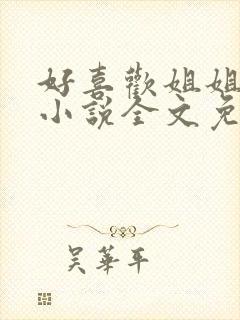 好喜歡姐姐
小說全文免
吴華平